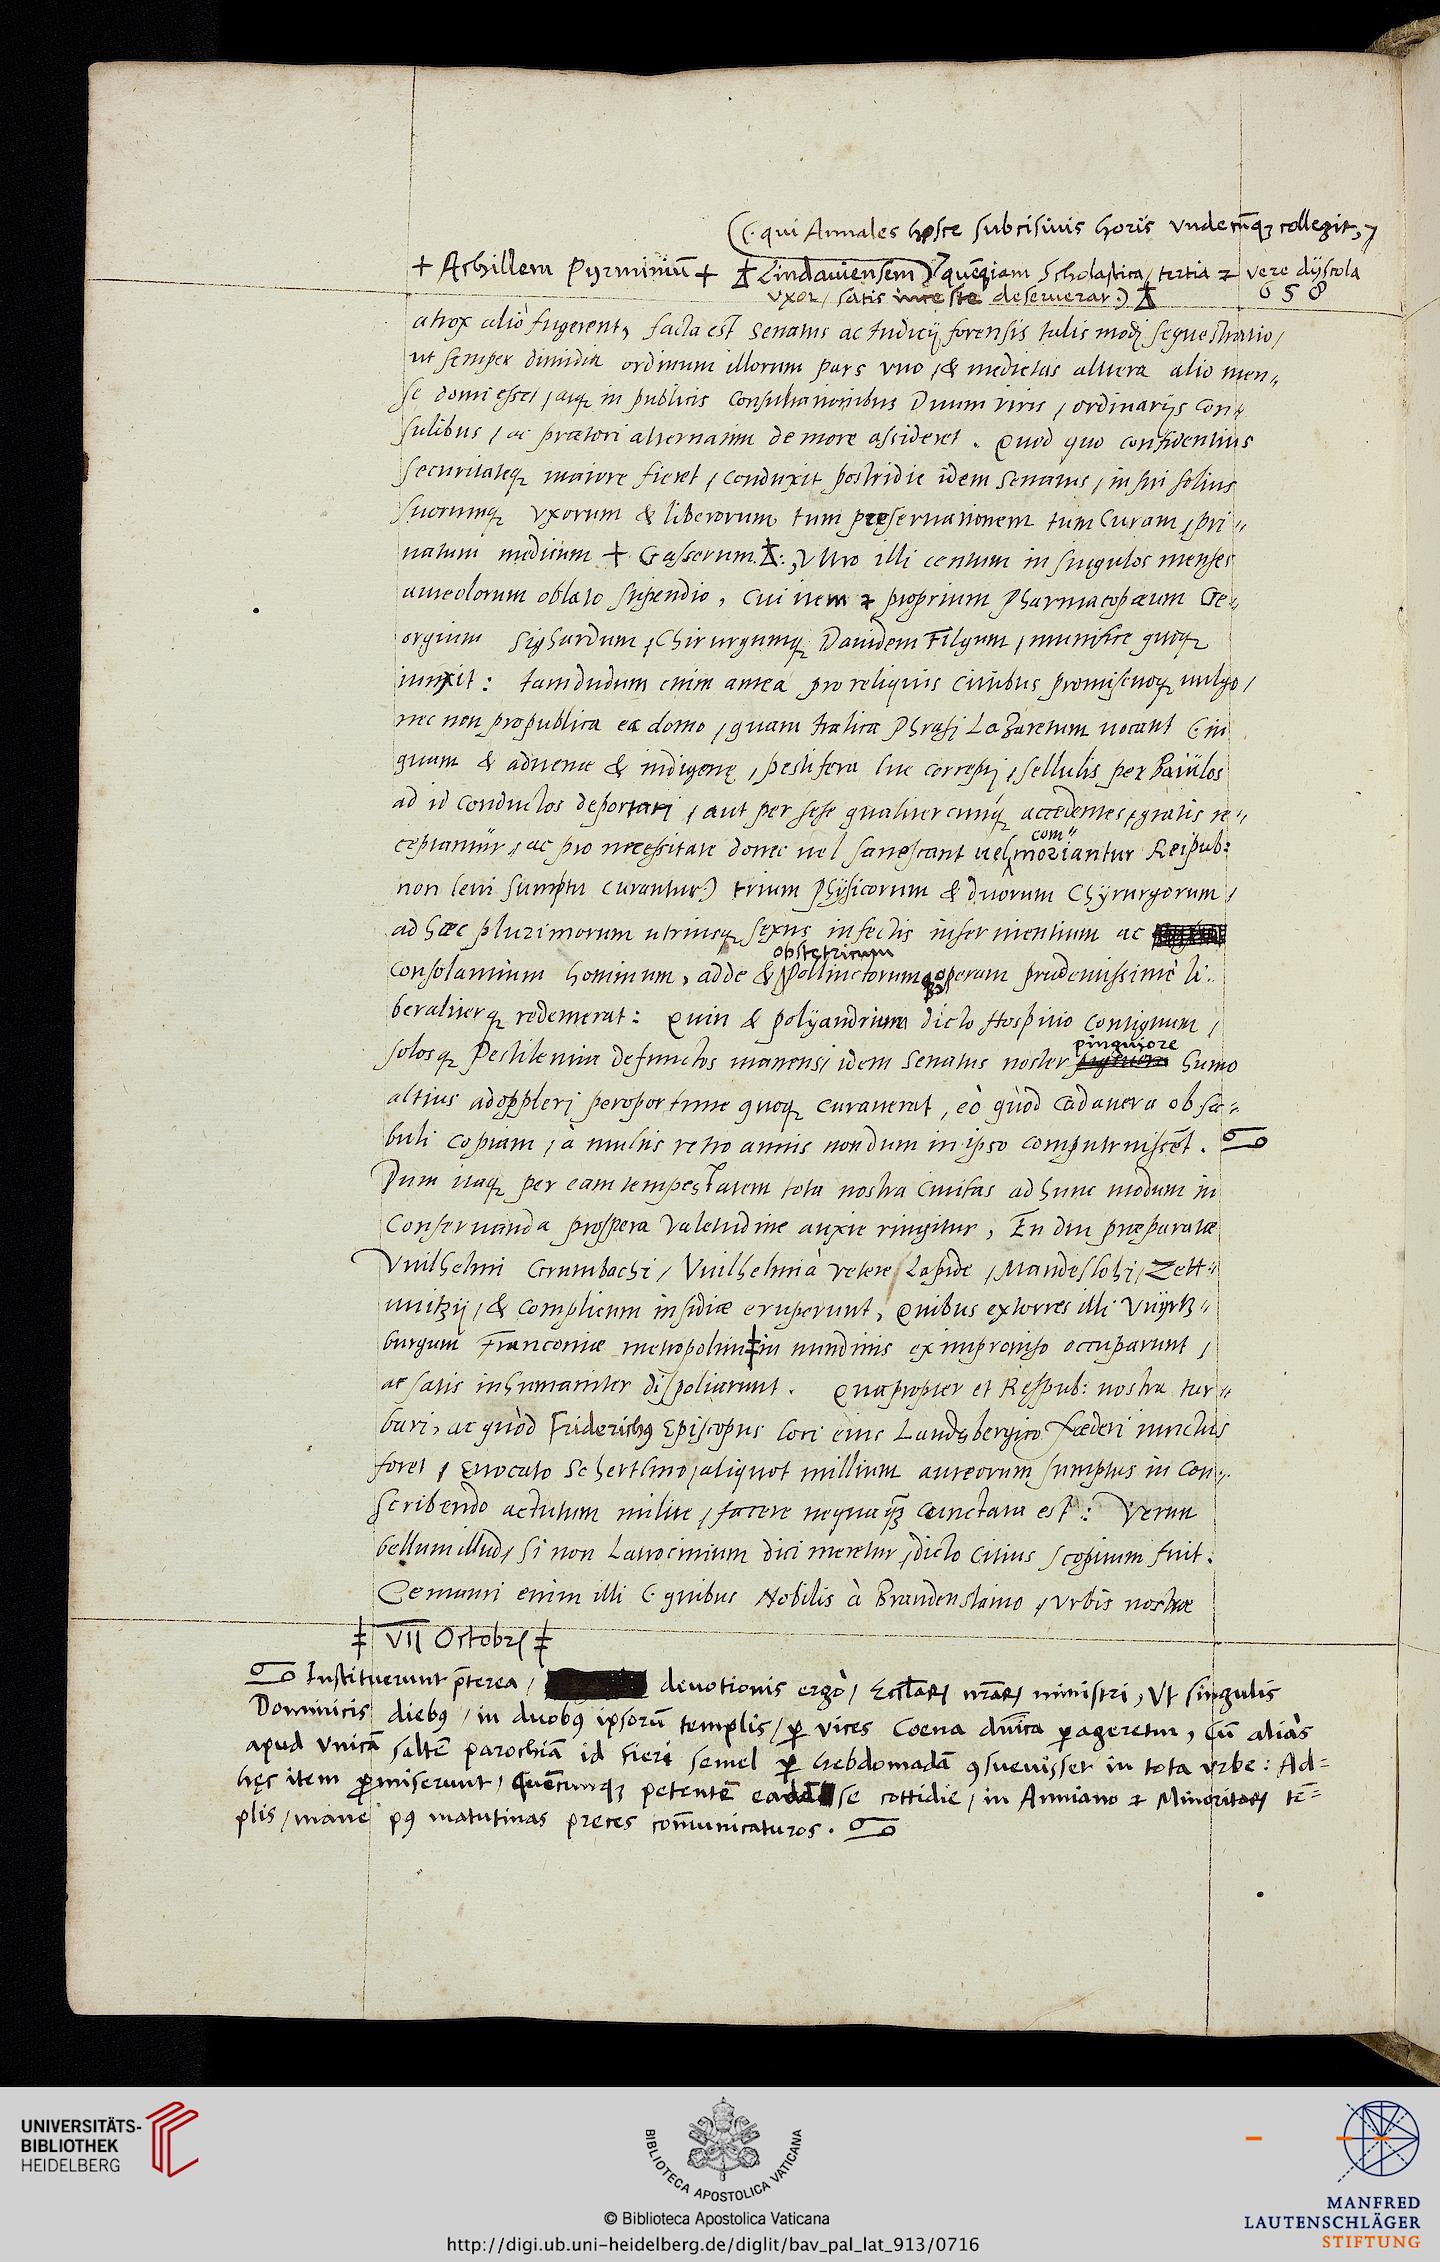 (C· qui Annales hosce subcisiuis horis undecũq; collegit, 7
+ Achillem Pyrminiũ + Lindauiensem) quẽq; iam Scholastica, tertia & vere dÿscola
uxor, satis inceste deseruerat.)
658
atrox aliò fugerent, facta est Senatus ac Iudicij forensis talis modj sequestratio,
ut semper dimidia ordinum illorum pars vno, & medietas altera alio men„
se domi esset, atq; in publicis Consultationibus Duum viris, ordinarijs Con„
sulibus, ac prætori alternatim de more assideret. Quod quo confidentius
securitateq; maiore fieret, conduxit postridie idem Senatus, in sui solius
suorumq; vxorum & liberorum tum preseruationem tum Curam, pri„
uatum medicum + Gasserum: vltro illi centum in singulos menses
aureolorum oblato stipendio, Cui item & proprium Pharmacopæum Ge„
orgium Sighardum, Chirurgumq; Dauidem Filgum, munifice quoq;
iunxit: Iamdudum enim antea pro reliquis Ciuibus promiscuoq; vulgo,
nec non pro publica ea domo, quam Italica Phrasj Lazaretum uocant C in
quam & aduenæ & indigenę, pestifera lue correptj, sellulis per Baiulos
ad id conductos deportarj, aut per sese qualitercunq; accedentes, gratis re„
cipiantur, ac pro necessitate donec uel sanescant uel moriantur Reipub:
com„
non leui sumptu curantur) trium Physicorum & duorum Chyrurgorum,
ad hæc plurimorum utriusq; sexus infectis inseruientium ac
Consolantium hominum, adde & Pollinctorumq; operam prudentissimè li„
obstetricum
beraliterq; redemerat: Quin & polÿandrium dicto Hospitio contiguum,
solosq; Pestilentia defunctos manens, idem Senatus noster pinguiore humo
altius adopplerj peroportune quoq; curauerat, eò quòd Cadauera ob sa„
buli copiam, à multis retro annis nondum in ipso computruissẽt.
Dum itaq; per eam tempestatem tota nostra Ciuitas ad hunc modum in
Conseruanda prospera valetudine anxie ringitur, En diu præparatæ
Vuilhelmi Grumbachi, Vuilhelmi à vetere Lapide, Mandeslohi, Zett„
uuitzij, & complicum insidiæ eruperunt, Quibus extorres illi Vuÿrtz„
burgum Franconiæ metropolim ‡ in nundinis ex improuiso occuparunt,
ac satis inhumaniter dispoliarunt. Quapropter et Respub: nostra tur„
bari, ac quòd Friderichus Episcopus loci eius Landsbergico fæderi iunctus
foret, euocato Schertlino, aliquot millium aureorum sumptus in Con„
scribendo actutum milite, facere nequaq̃ cunctata est: Verum
bellum illud, si non Latrocinium dici meretur, dicto citius sopitum fuit.
Germani enim illi C quibus Nobilis à Brandenstaino, Vrbis nostræ
‡ VII Octobr ‡
Instituerunt p̃terea, deuotionis ergò, Eccl̃arum nr̃arum ministri, Vt singulis
Dominicis diebus, in duobus ipsorũ templis, per vices Coena dñica perageretur, Cũ aliàs
apud vnicã saltẽ parochiã id fieri semel per hebdomadã consueuisset in tota vrbe: Ad=
hęc item promiserunt, quẽcunq; petentẽ se cottidie, in Anniano & Minoritarum tẽ=
plis, mane post matutinas preces com̃unicaturos.
UNIVERSITÄTS-
BIBLIOTHEK
HEIDELBERG
BIBLIOTECA APOSTOLICA VATICANA
© Biblioteca Apostolica Vaticana
http://digi.ub.uni-heidelberg.de/diglit/bav_pal_lat_913/0716
MANFRED
LAUTENSCHLÄGER
STIFTUNG